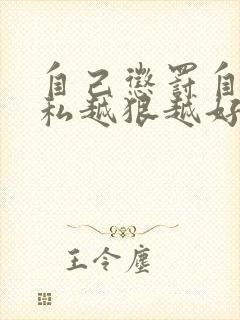 自己懲罰自
私越狠越好
王令塵